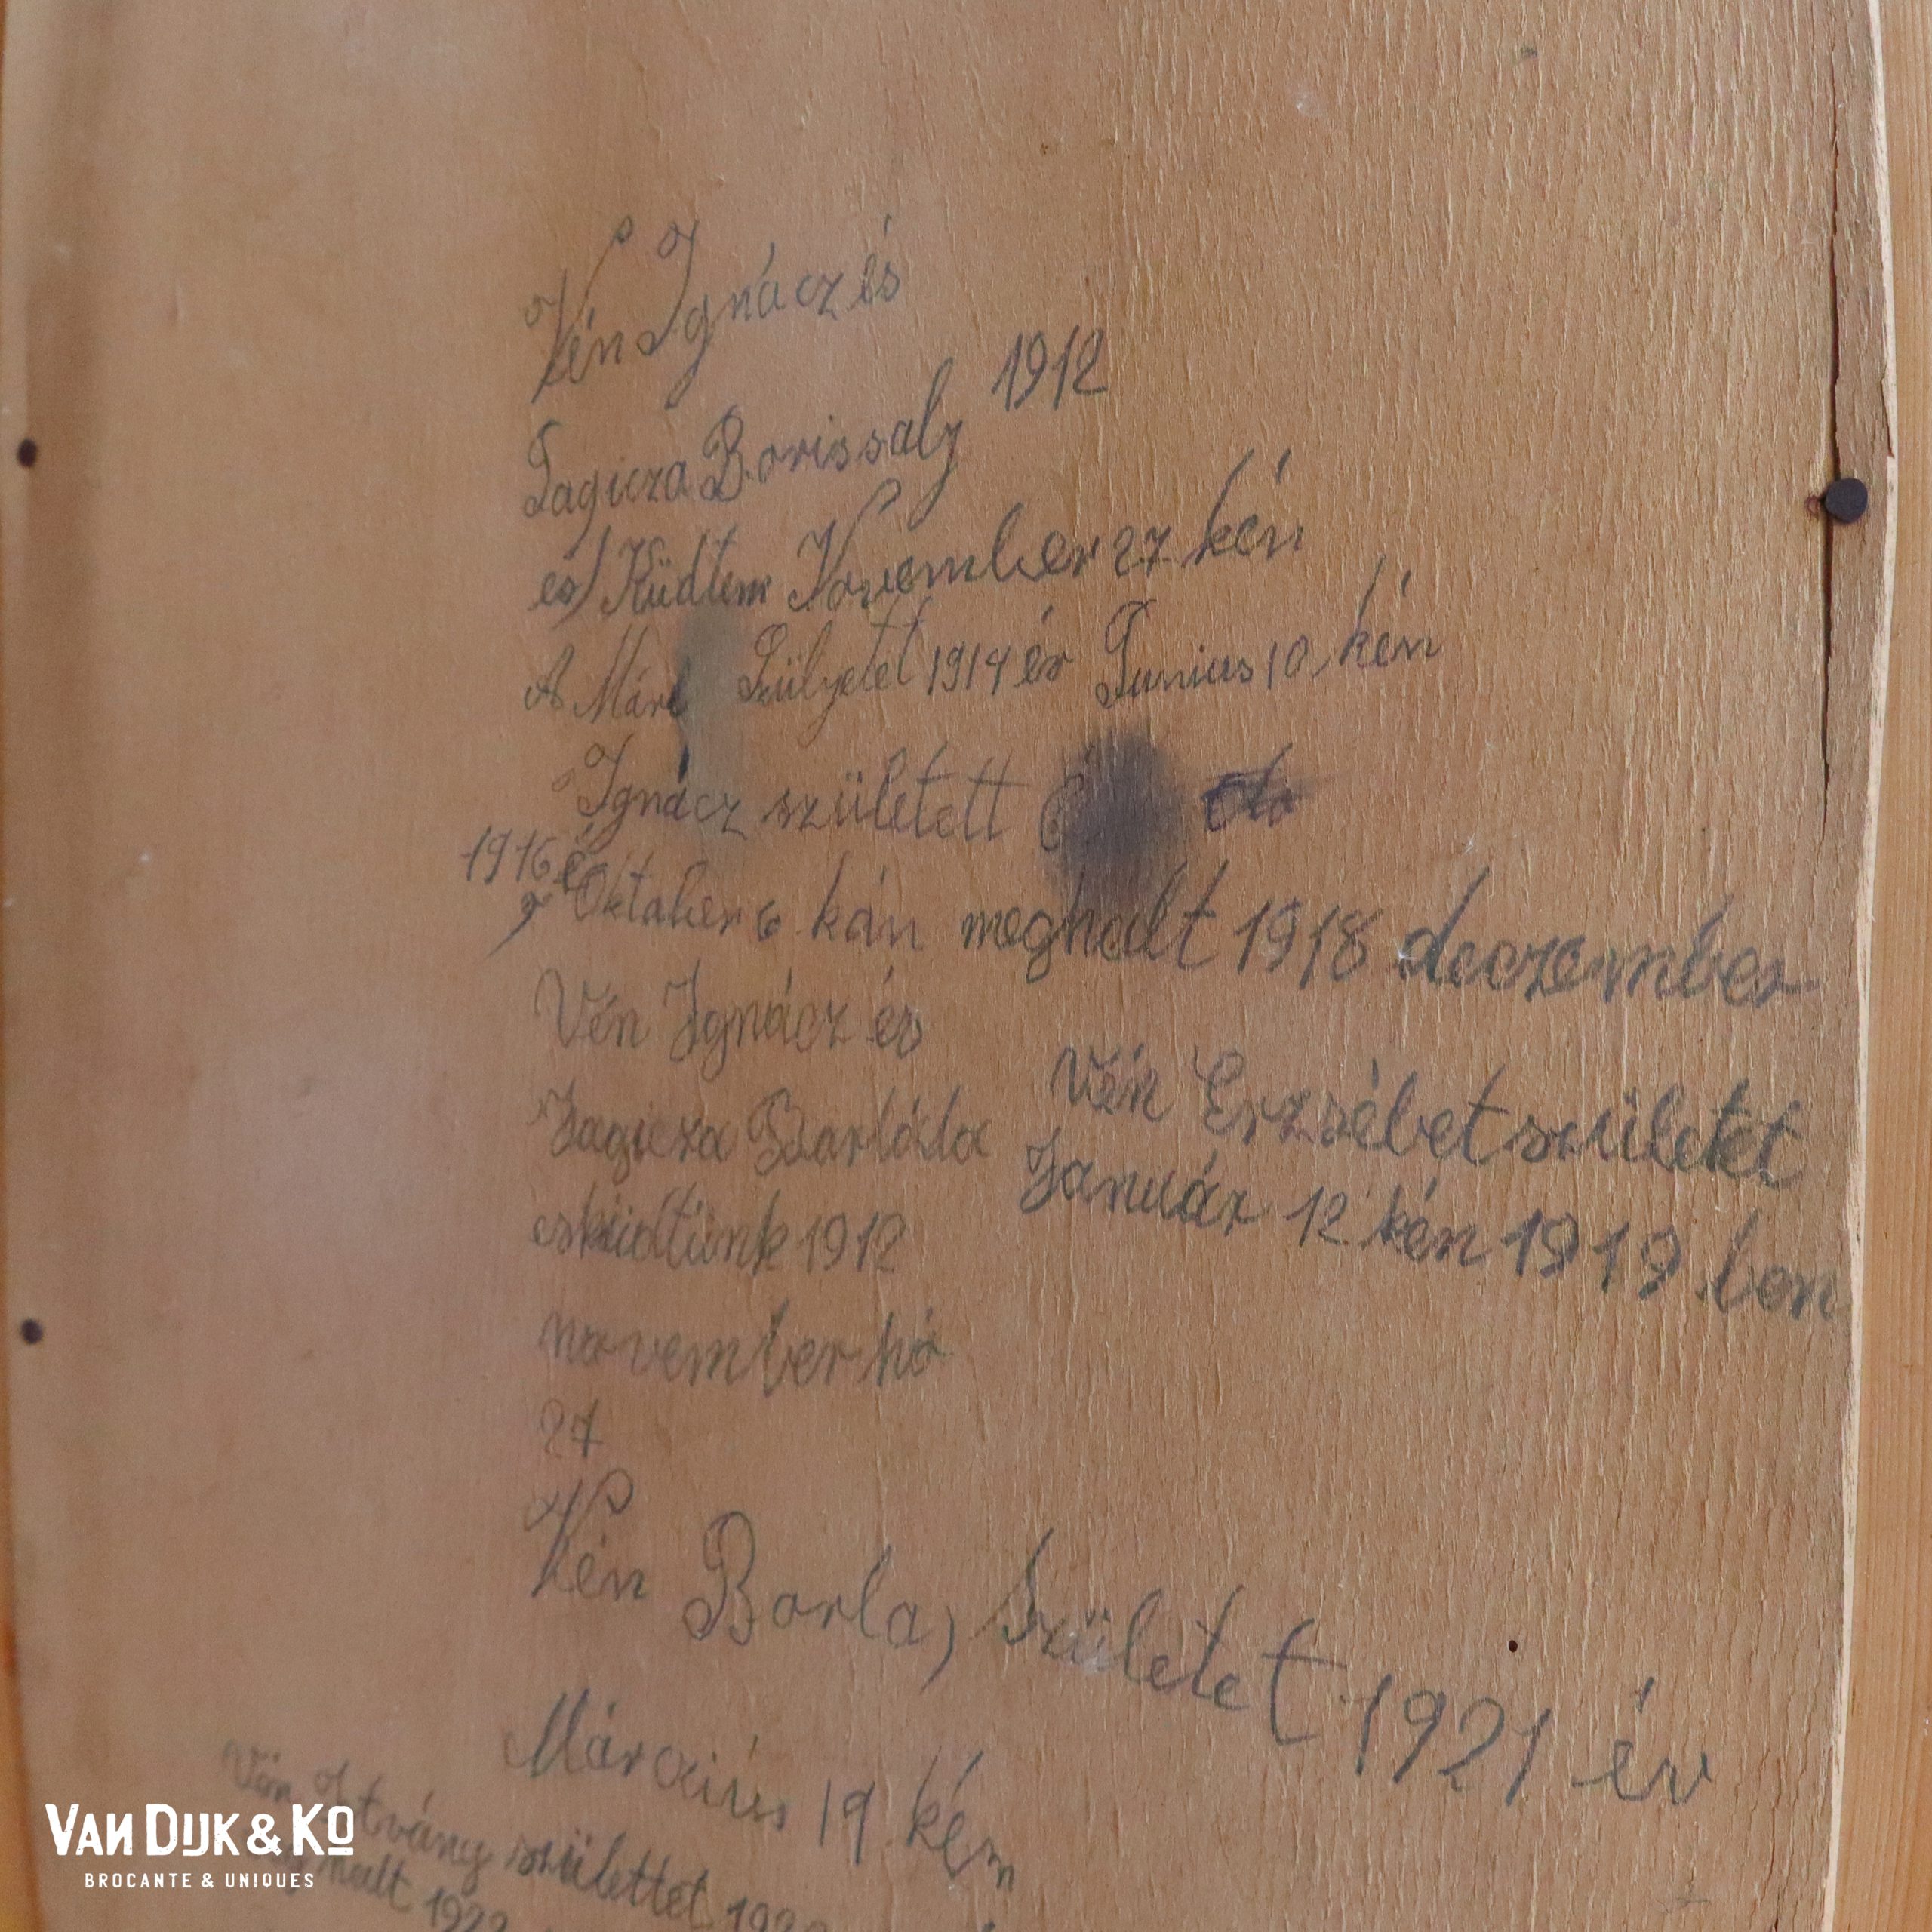 Vén Ignácz és
Jagicza Borissaly 1912
es Küdtem November 27 kén
A Mári Szülyetet 1914 év Junius 10, kén
Ignácz született
1916 é
Oktober 6 kán meghalt 1918 deczember
Vén Ignácz és
Jagicza Borbála
esküdtünk 1912
november hó
27
Vén Erzsébet született
Január 12 kén 1919 ben
Vén Borla, Születet 1921 év
Márczius 19 kém
Vén István születtet
halt 1922
VAN DIJK & KO
BROCANTE & UNIQUES